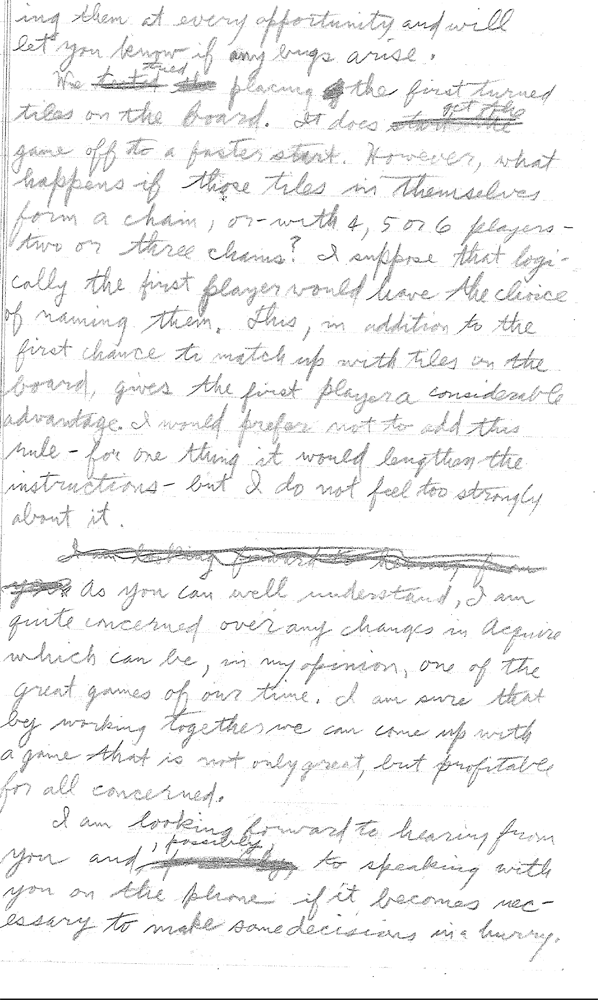 ing them at every opportunity and will
let you know if any bugs arise.
We tested tried the placing the first turned
tiles on the board. It does start the get the
game off to a faster start. However, what
happens if those tiles in themselves
form a chain, or-with 4, 5 or 6 players-
two or three chains? I suppose that logi-
cally the first player would have the choice
of naming them. This, in addition to the
first chance to match up with tiles on the
board, gives the first player a considerable
advantage. I would prefer not to add this
rule - for one thing it would lengthen the
instructions - but I do not feel too strongly
about it.
I am looking forward to hearing from
you As you can well understand, I am
quite concerned over any changes in Acquire
which can be, in my opinion, one of the
great games of our time. I am sure that
by working together we can come up with
a game that is not only great, but profitable
for all concerned.
I am looking forward to hearing from
you and, possibly, to speaking with
you on the phone if it becomes nec-
essary to make some decisions in a hurry.